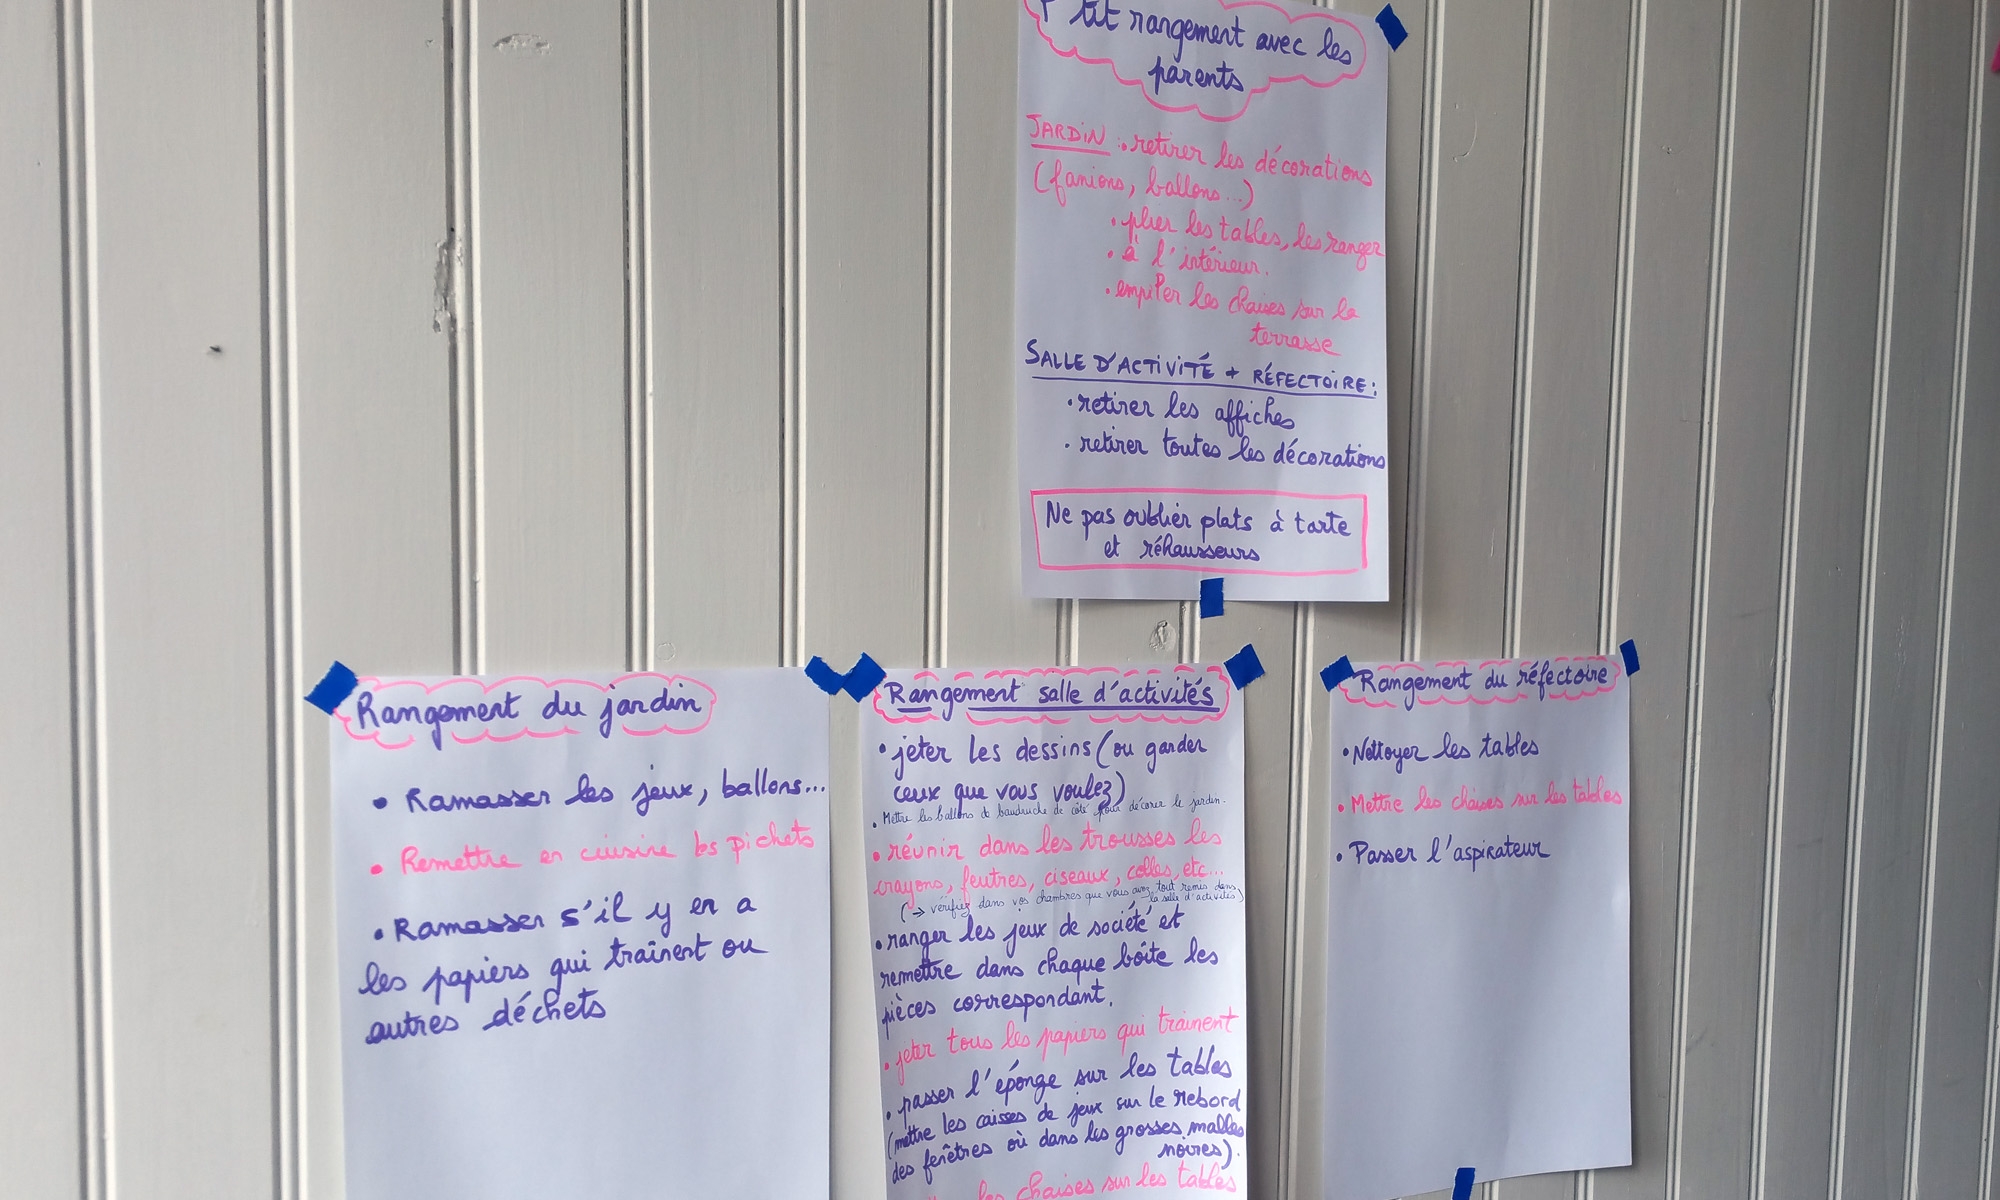 P'tit rangement avec les
parents
JARDiN : • retirer les décorations
(fanions, ballons...)
• plier les tables, les ranger
• à l'intérieur.
• empiler les chaises sur la
terrasse
SALLE D'ACTiViTÉ + RÉFECTOiRE :
• retirer les affiches
• retirer toutes les décorations
Ne pas oublier plats à tarte
et réhausseurs
Rangement du jardin
• Ramasser les jeux, ballons...
• Remettre en cuisine les pichets
• Ramasser s'il y en a
les papiers qui traînent ou
autres déchets
Rangement salle d'activités
• jeter les dessins (ou garder
ceux que vous voulez)
• Mettre les ballons de baudruche de côté pour décorer le jardin.
• réunir dans les trousses les
crayons, feutres, ciseaux, colles, etc...
(→ vérifiez dans vos chambres que vous avez tout remis dans
la salle d'activités)
• ranger les jeux de société et
remettre dans chaque boîte les
pièces correspondant.
• jeter tous les papiers qui trainent
• passer l'éponge sur les tables
(mettre les caisses de jeux sur le rebord
des fenêtres où dans les grosses malles
noires).
les chaises sur les tables
Rangement du réfectoire
• Nettoyer les tables
• Mettre les chaises sur les tables
• Passer l'aspirateur